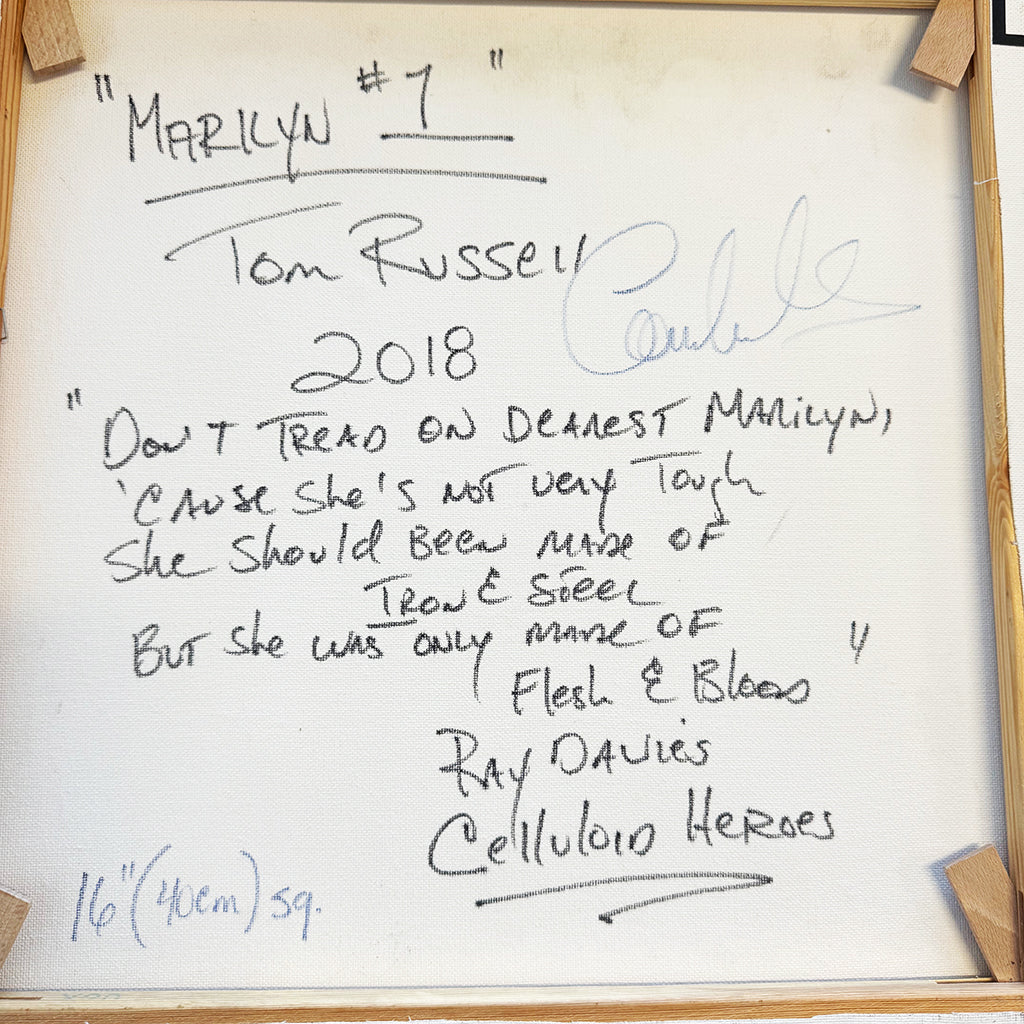 "MARILYN #1"
Tom Russell
2018
"DON'T TREAD ON DEAREST MARILYN,
'CAUSE She'S NOT very Tough
She Should BEEN MADE OF
IRON & STEEL
BUT She WAS ONLY MADE OF
Flesh & Blood"
RAY DAVIES
Celluloid HEROES
16" (40cm) sq.